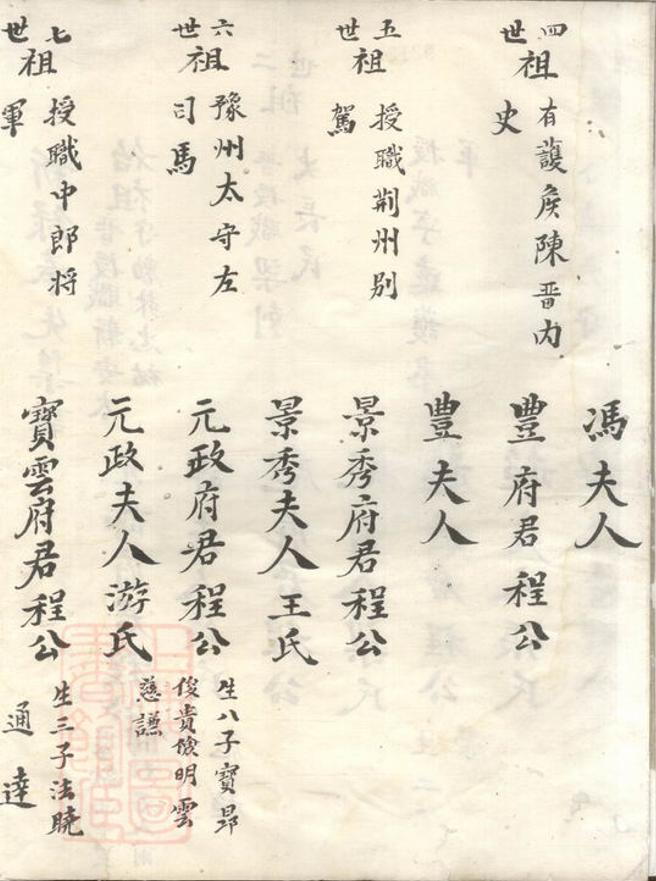 馮夫人
四世祖
有䕶矦陳晋内
史
豐府君程公
豐夫人
五世祖
授職荆州别
駕
景秀府君程公
景秀夫人王氏
六世祖
豫州太守左
司馬
元政府君程公
生八子寶昂
俊貴儉明雲
慈謙
元政夫人游氏
七世祖
授職中郎将
軍
寶雲府君程公
生三子法曉
通達